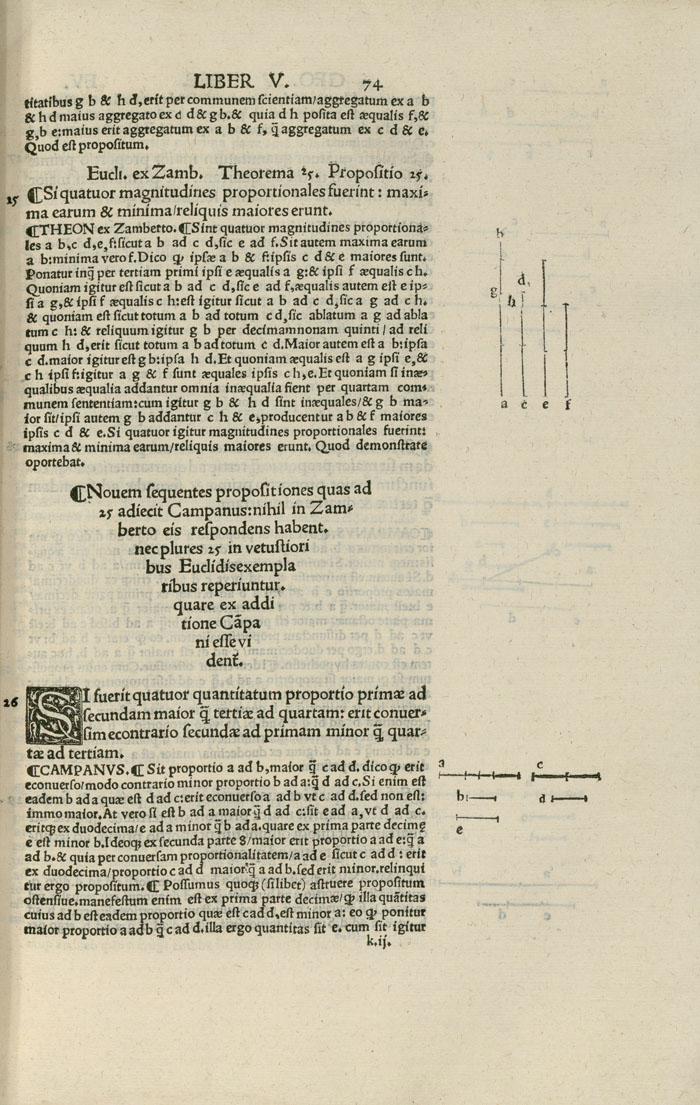 LIBER V. 74
titatibus g b & h d, erit per communem scientiam/aggregatum ex a b
& h d maius aggregato ex c d & g b. & quia d h posita est æqualis f, &
g, b e: maius erit aggregatum ex a b & f, q̃ aggregatum ex c d & e.
Quod est propositum.
Eucli. ex Zamb. Theorema 25. Propositio 25.
15 ¶Si quatuor magnitudines proportionales fuerint: maxi-
ma earum & minima/reliquis maiores erunt.
¶THEON ex Zamberto. ¶Sint quatuor magnitudines proportiona-
les a b, c d, e, f: sicut a b ad c d, sic e ad f. Sit autem maxima earum
a b: minima vero f. Dico ꝙ ipsæ a b & f: ipsis c d & e maiores sunt.
Ponatur inq̃ per tertiam primi ipsi e æqualis a g: & ipsi f æqualis c h.
Quoniam igitur est sicut a b ad c d, sic e ad f, æqualis autem est e ip-
si a g, & ipsi f æqualis c h: est igitur sicut a b ad c d, sic a g ad c h.
& quoniam est sicut totum a b ad totum c d, sic ablatum a g ad abla
tum c h: & reliquum igitur g b per decimamnonam quinti/ad reli
quum h d, erit sicut totum a b ad totum c d. Maior autem est a b: ipsa
c d. maior igitur est g b: ipsa h d. Et quoniam æqualis est a g ipsi e, &
c h ipsi f: igitur a g & f sunt æquales ipsis c h, e. Et quoniam si inæ-
qualibus æqualia addantur omnia inæqualia fient per quartam com-
munem sententiam: cum igitur g b & h d sint inæquales/& g b ma-
ior sit/ipsi autem g b addantur c h & e, producentur a b & f maiores
ipsis c d & e. Si quatuor igitur magnitudines proportionales fuerint:
maxima & minima earum/reliquis maiores erunt. Quod demonstrare
oportebat.
b
d
g
h
a c e f
¶Nouem sequentes propositiones quas ad
25 adiecit Campanus: nihil in Zam-
berto eis respondens habent.
nec plures 25 in vetustiori
bus Euclidis exempla
ribus reperiuntur.
quare ex addi
tione Cãpa
ni esse vi
dent̃.
26 SI fuerit quatuor quantitatum proportio primæ ad
secundam maior q̃ tertiæ ad quartam: erit conuer-
sim econtrario secundæ ad primam minor q̃ quar-
tæ ad tertiam.
¶CAMPANVS. ¶Sit proportio a ad b, maior q̃ c ad d. dico ꝙ erit
econuerso/modo contrario minor proportio b ad a: q̃ d ad c. Si enim est
eadem b ad a quæ est d ad c: erit econuerso a ad b vt c ad d. sed non est:
immo maior. At vero si est b ad a maior q̃ d ad c: sit e ad a, vt d ad c.
eritq; ex duodecima/e ad a minor q̃ b ad a. quare ex prima parte decimę
e est minor b. Ideoq; ex secunda parte 8/maior erit proportio a ad e: q̃ a
ad b. & quia per conuersam proportionalitatem/a ad e sicut c ad d: erit
ex duodecima/proportio c ad d maior q̃ a ad b. sed erit minor. relinqui
tur ergo propositum. ¶Possumus quoq; (si libet) astruere propositum
ostensiue. manefestum enim est ex prima parte decimæ/ꝙ illa quãtitas
cuius ad b est eadem proportio quæ est c ad d, est minor a: eo ꝙ ponitur
maior proportio a ad b q̃ c ad d. illa ergo quantitas sit e. cum sit igitur
k.ij.
a c
b d
e